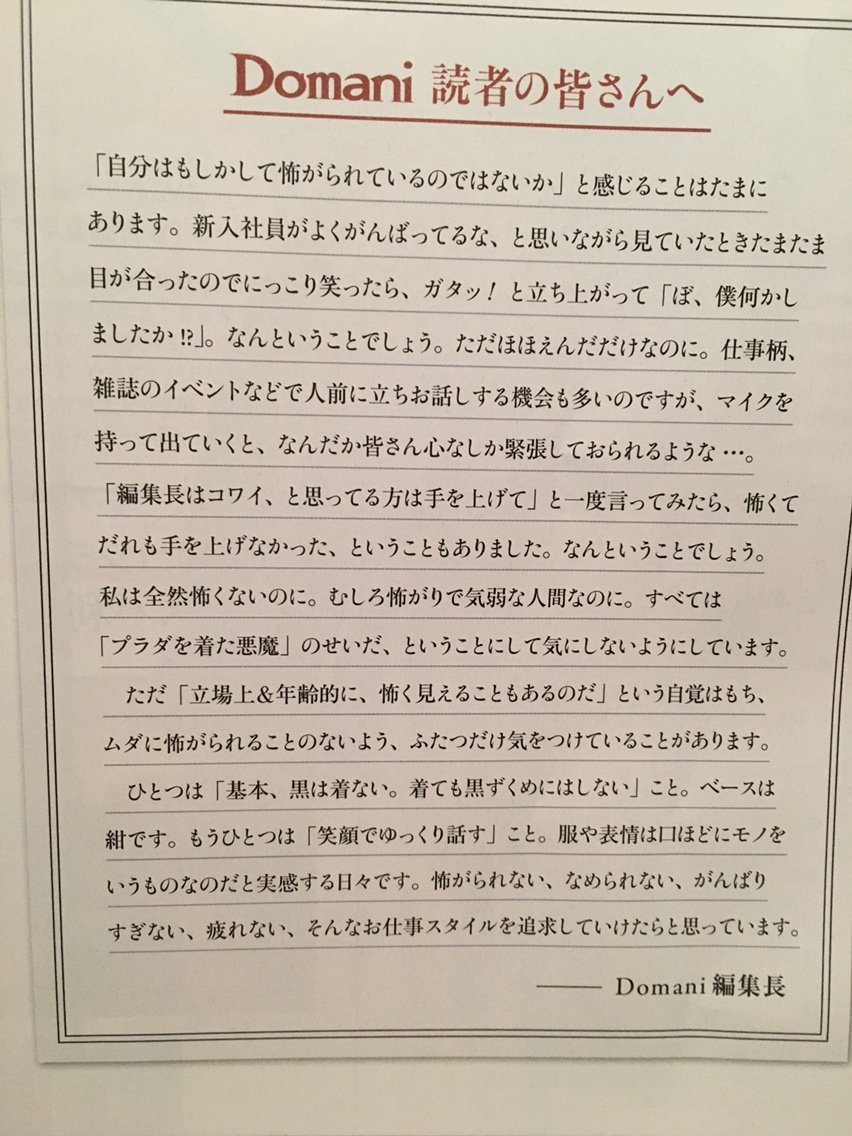 Domani 読者の皆さんへ
「自分はもしかして怖がられているのではないか」と感じることはたまに
あります。新入社員がよくがんばってるな、と思いながら見ていたときたまたま
目が合ったのでにっこり笑ったら、ガタッ! と立ち上がって「ぼ、僕何かし
ましたか!?」。なんということでしょう。ただほほえんだだけなのに。仕事柄、
雑誌のイベントなどで人前に立ちお話しする機会も多いのですが、マイクを
持って出ていくと、なんだか皆さん心なしか緊張しておられるような…。
「編集長はコワイ、と思ってる方は手を上げて」と一度言ってみたら、怖くて
だれも手を上げなかった、ということもありました。なんということでしょう。
私は全然怖くないのに。むしろ怖がりで気弱な人間なのに。すべては
「プラダを着た悪魔」のせいだ、ということにして気にしないようにしています。
ただ「立場上&年齢的に、怖く見えることもあるのだ」という自覚はもち、
ムダに怖がられることのないよう、ふたつだけ気をつけていることがあります。
ひとつは「基本、黒は着ない。着ても黒ずくめにはしない」こと。ベースは
紺です。もうひとつは「笑顔でゆっくり話す」こと。服や表情は口ほどにモノを
いうものなのだと実感する日々です。怖がられない、なめられない、がんばり
すぎない、疲れない、そんなお仕事スタイルを追求していけたらと思っています。
―― Domani編集長